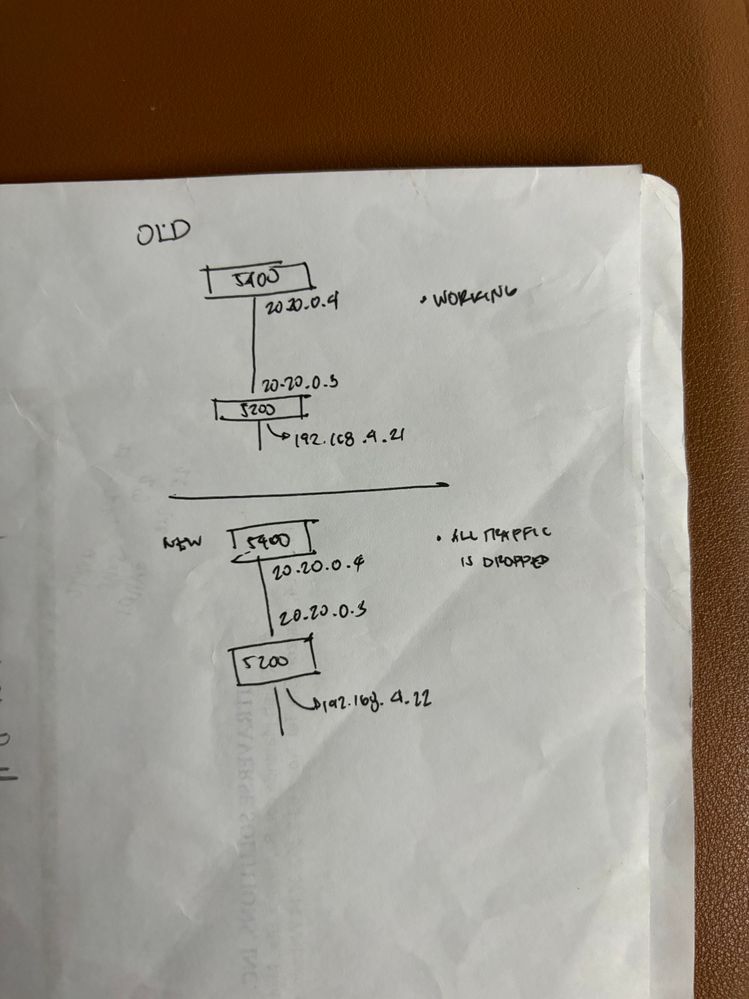 OLD
5400
20.20.0.4
• WORKING
20.20.0.3
5200
192.168.4.21
NEW
5400
• ALL TRAFFIC
IS DROPPED
20.20.0.4
20.20.0.3
5200
192.168.4.22